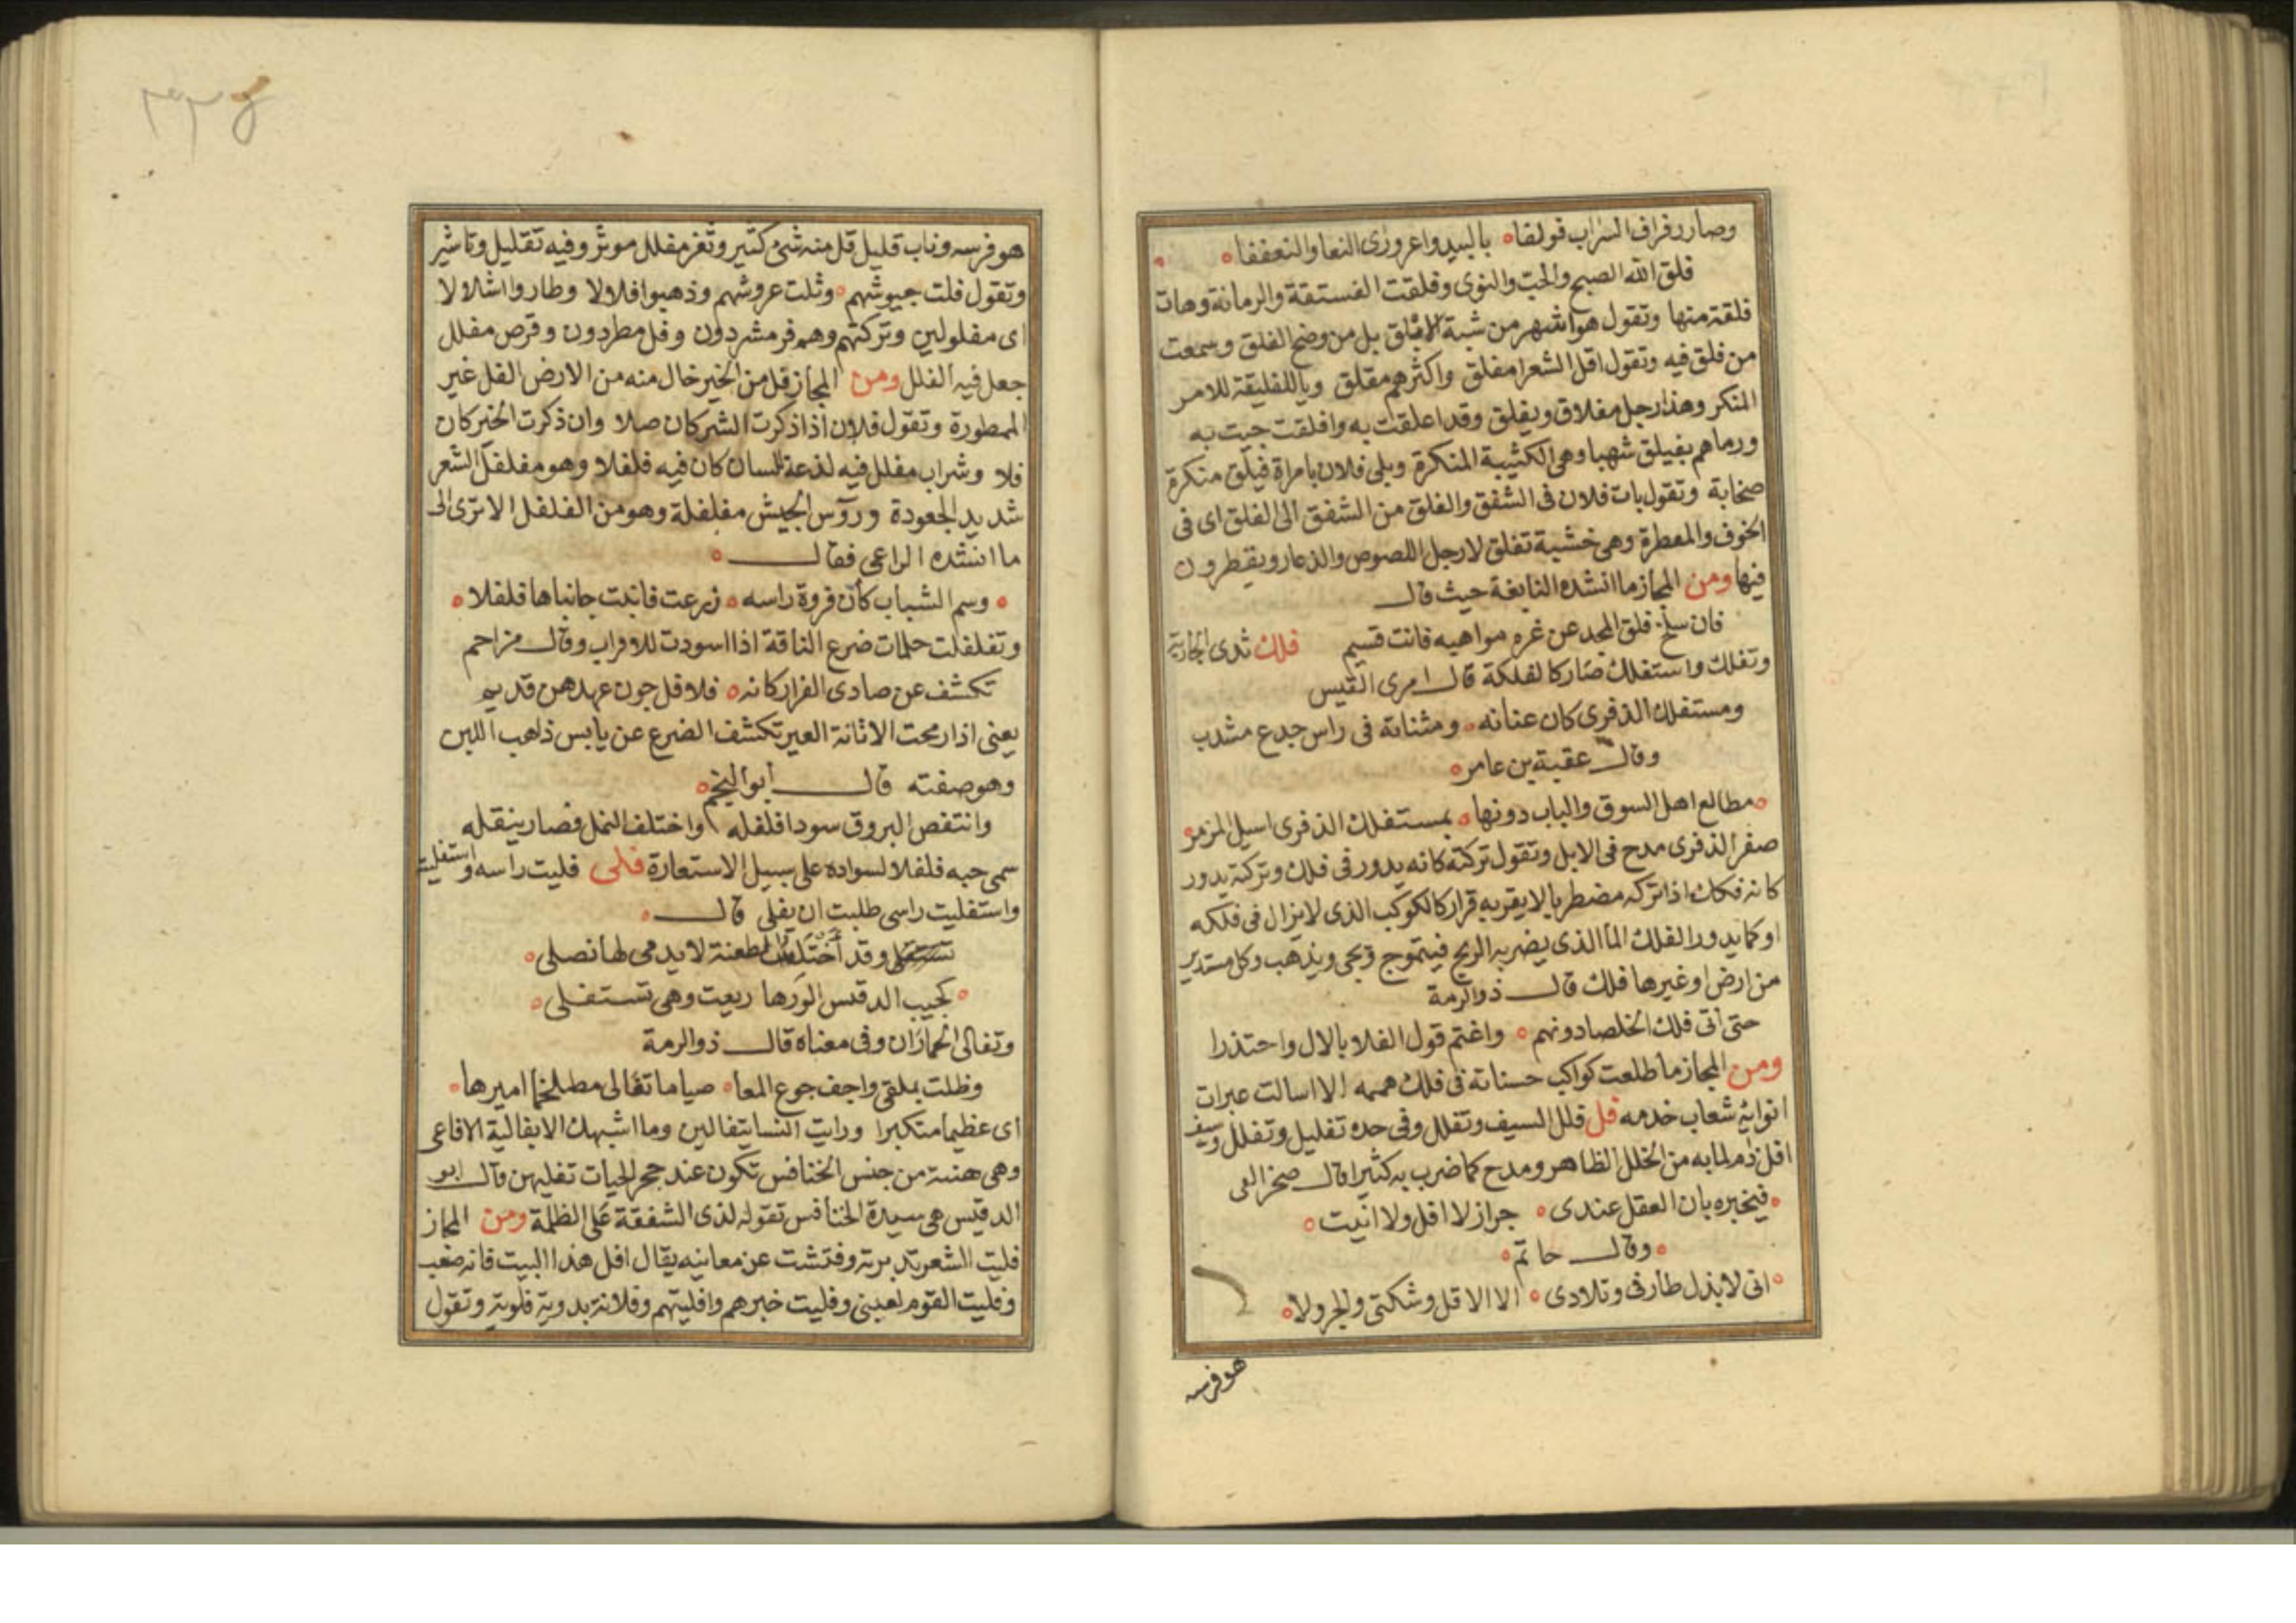 وصار رفراف السراب فولفا بالبيد واعروزى النعا والنعففا
فلق الله الصبح والحب والنوى وفلقت الفستقة والرمانة وهات
فلقة منها وتقول هو اشهر من شية الابلق بل من وضح الفلق وسمعت
من فلق فيه وتقول اقل الشعرا مفلق واكثرهم مقلق وياللفليقة للامر
المنكر وهذا رجل مفلاق ويفلق وقد اعلقت به وافلقت جيت به
ورماهم بفيلق شهبا وهى الكثيبة المنكرة وبلى فلان بامراة فيلق منكرة
صخابة وتقول بات فلان فى الشفق والفلق من الشفق الى الفلق اى فى
الخوف والمعطرة وهى خشبة تفلق لارجل اللصوص والذعار ويقيطرون
فيها ومن المجاز ما انشده النابغة حيث قال
فان سلخ فلق المجد عن غره مواهبه فانت قسيم فلك ثدى الجارية
وتفلك واستفلك صار كالفلكة قال امرى القيس
ومستفلك الذفرى كان عنانه ومثناته فى راس جدع مشدب
وقال عقبة بن عامر
مطالع اهل السوق والباب دونها بمستفلك الذفرى اسيل المزمر
صفر الذفرى مدح فى الابل وتقول تركته كانه يدور فى فلك وتركته يدور
كانه فكك اذا تركه مضطربا لا يقربه قرار كالكوكب الذى لا يزال فى فلكه
او كما يدور الفلك الما الذى يضربه الريح فيتموج ويجى ويذهب وكل مستدير
من ارض او غيرها فلك قال ذو الرمة
حتى اتى فلك الخلصا دونهم واغتم قول الفلا بالال واحتذرا
ومن المجاز ما طلعت كواكب حسناته فى فلك هممه الا اسالت عبرات
انوائه شعاب خدمه فل فلل السيف وتقلل وفى حده تفليل وتفلل وسيف
افل ذم لما به من الخلل الظاهر ومدح كما ضرب به كثيرا قال صخر الغى
فيخبره بان العقل عندى جراز لا افل ولا انيت
وقال حاتم
انى لابذل طارفى وتلادى الا الاقل وشكتى والجرولا
هو فرسه
٣٣٤
هو فرسه وناب قليل قل منه شئ كثير وثغر مفلل موشر وفيه تقليل وتاشير
وتقول فلت جيوشهم وثلت عروشهم وذهبوا فلالا وطاروا اشلالا
اى مفلولين وتركتهم وهم فر مشردون وفل مطردون وقرص مفلل
جعل فيه الفلل ومن المجاز قل من الخير خال منه من الارض الفل غير
الممطورة وتقول فلان اذا ذكرت الشر كان صلا وان ذكرت الخير كان
فلا وشراب مفلل فيه لذعة للسان كان فيه فلفلا وهو مفلفل الشعر
شديد الجعودة وروس الجيش مفلفلة وهو من الفلفل الا ترى الى
ما انشده الراعى فقال
وسم الشباب كان فروة راسه زرعت فانبت جانباها فلفلا
وتفلفلت حلمات ضرع الناقة اذا اسودت للاقراب وقال مزاحم
تكشف عن صادى الفرار كانه فلافل جون عهدهن قديم
يعنى اذا رمحت الاثانة العير تكشف الضرع عن يابس ذاهب اللبن
وهو صفته قال ابو النجم
وانتفص البروق سودا فلفله واختلف النمل فصار ينقله
سمى حبه فلفلا لسواده على سبيل الاستعارة فلى فليت راسه واستفليته
واستفليت راسى طلبت ان يفلى قال
وقد اختلس الطعنة لا يدمى لها نصلى
كجيب الدفنس الورها ريعت وهى تستفلى
وتفالى الحماران وفى معناه قال ذو الرمة
وظلت بملقى واجف جوع المعا صياما تفالى مطلخما اميرها
اى عظيما متكبرا ورايت النسا يتفالين وما اشبهك الا بفالية الافاعى
وهى هنة من جنس الخنافس تكون عند جحر الحيات تفليهن قال ابو
الدقيس هى سيدة الخنافس تقوله لذى الشفقة على الظلمة ومن المجاز
فليت الشعر تدبرته وفتشت عن معانيه يقال افل هذا البيت فانه صعب
وفليت القوم لعينى وفليت خبرهم وافليتهم وفلانة بدوية فلوية وتقول